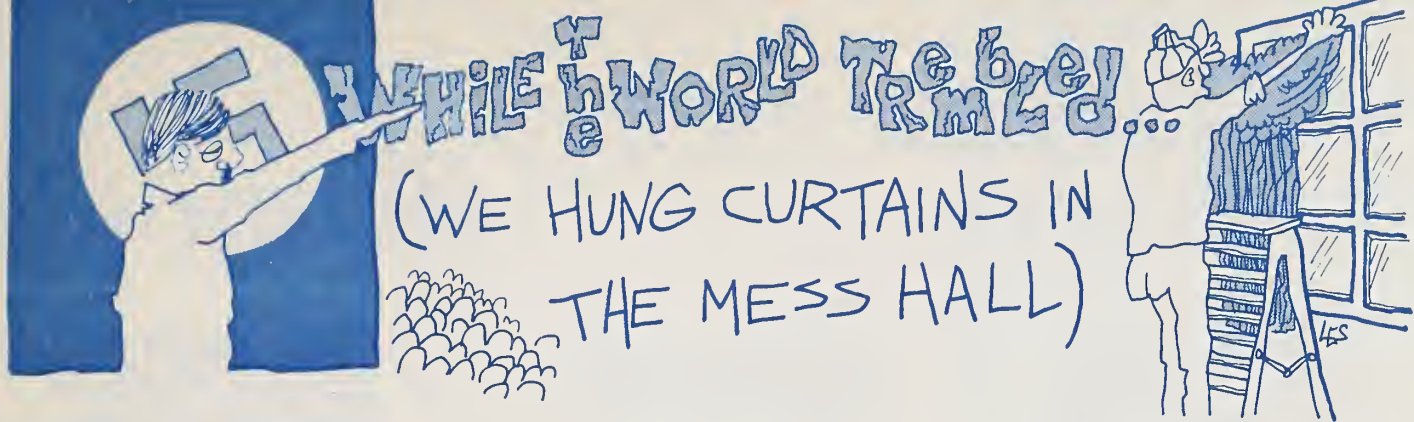 WHiLE THe WORLD TRemBLed...
(WE HUNG CURTAINS IN
THE MESS HALL)
LES